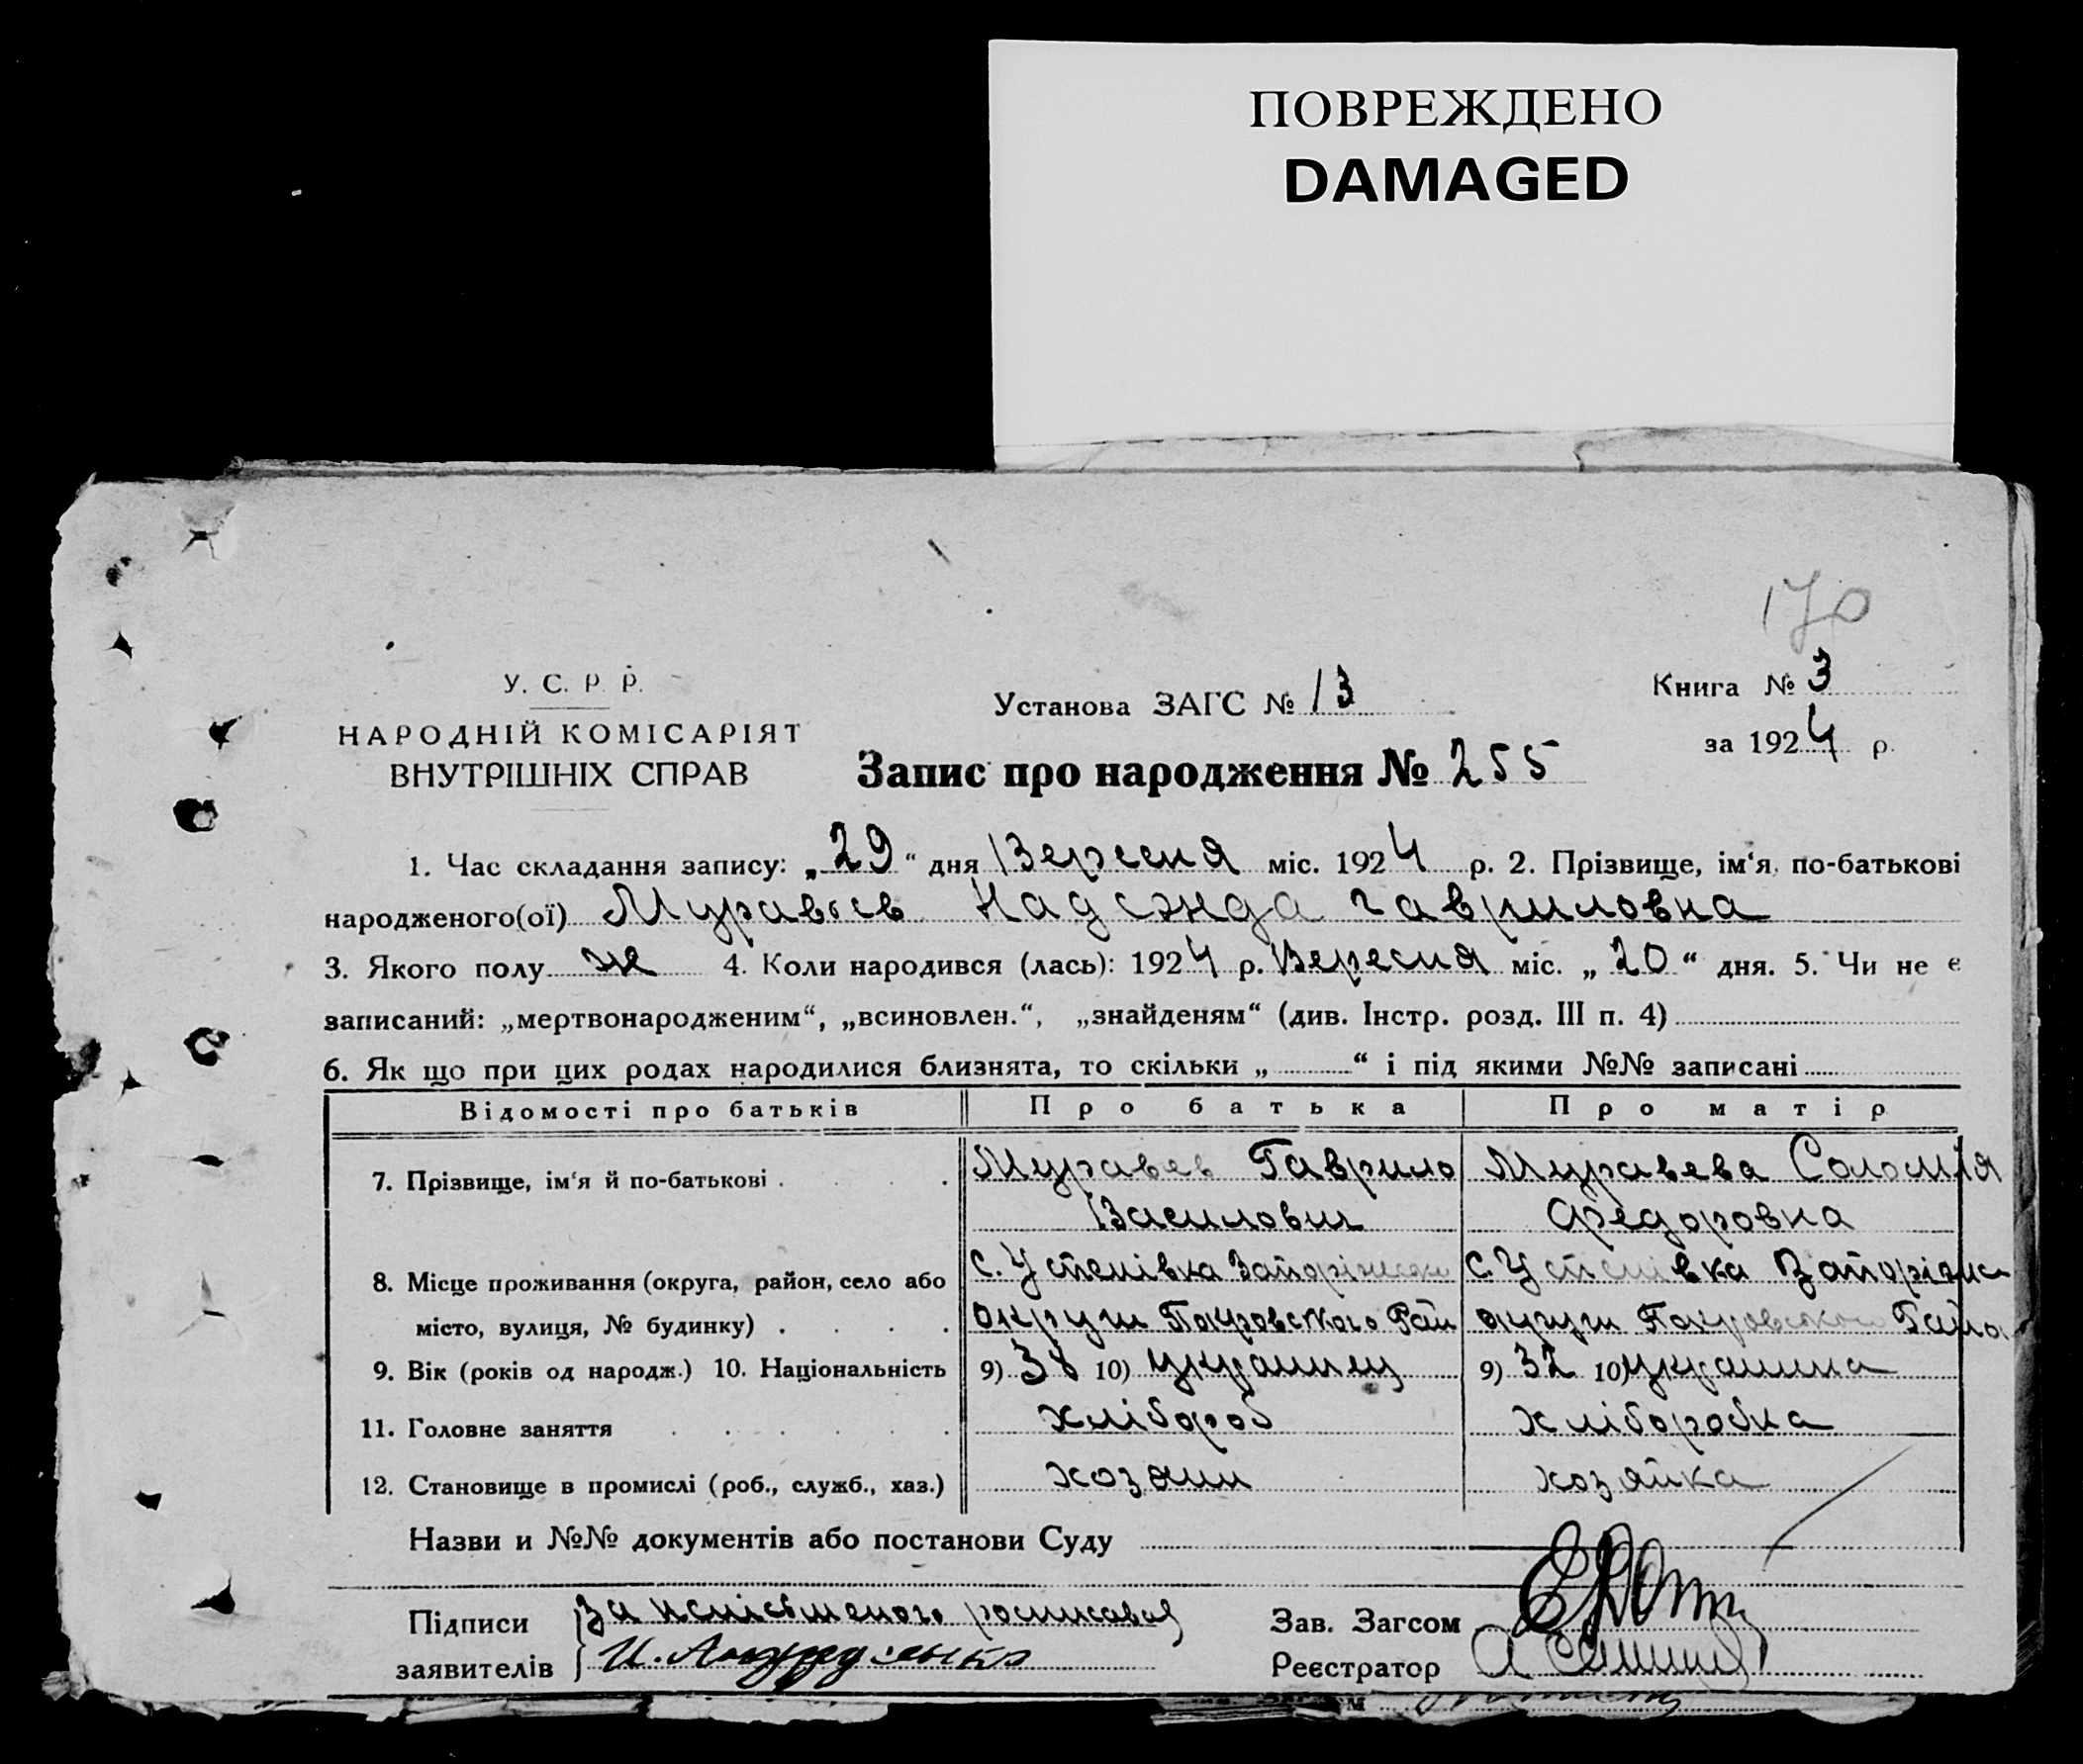 ПОВРЕЖДЕНО
DAMAGED
170
У. С. Р. Р.
НАРОДНІЙ КОМІСАРІЯТ
ВНУТРІШНІХ СПРАВ
Установа ЗАГС № 13
Книга № 3
за 1924 р.
Запис про народження № 255
1. Час складання запису: „29“ дня Вересня міс. 1924 р. 2. Прізвище, ім‘я, по-батькові
народженого(ої) Муравьев Надежда Гавриловна
3. Якого полу ж 4. Коли народився (лась): 1924 р. Вересня міс. „20“ дня. 5. Чи не є
записаний: „мертвонародженим“, „всиновлен.“, „знайденям“ (див. Інстр. розд. III п. 4)
6. Як що при цих родах народилися близнята, то скільки „ “ і під якими №№ записані
Відомості про батьків Про батька Про матір
7. Прізвище, ім‘я й по-батькові Муравев Гаврило Муравева Соломія
Василович Федоровка
8. Місце проживання (округа, район, село або с. Успенівка с. Успенівка
місто, вулиця, № будинку) округи Покровского Рай округи
9. Вік (років од народж.) 10. Національність 9) 38 10) украинец 9) 32 10) украинка
11. Головне заняття хлібороб хлiборобка
12. Становище в промислі (роб., служб., хаз.) хозяин хозяйка
Назви и №№ документів або постанови Суду
Підписи За росписався Зав. Загсом
заявителів И. Реєстратор А